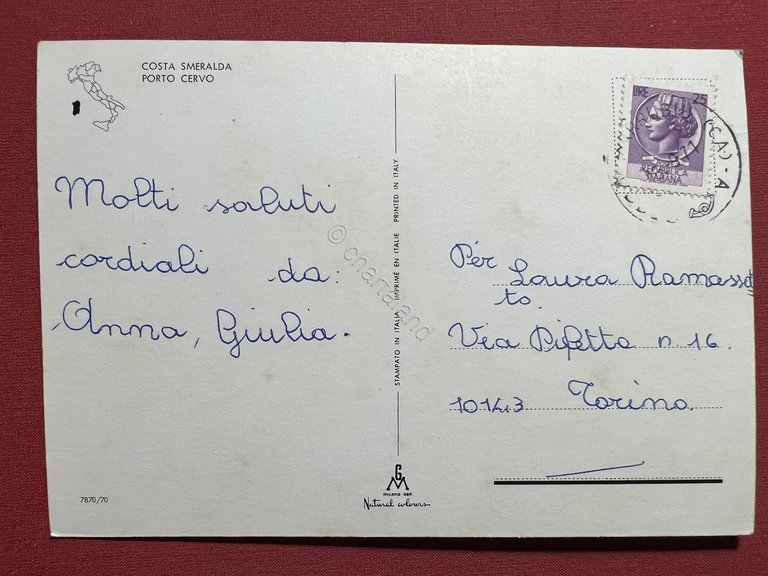 COSTA SMERALDA
PORTO CERVO
Molti saluti
cordiali da:
Anna, Giulia.
7870/70
STAMPATO IN ITALIA IMPRIMÉ EN ITALIE PRINTED IN ITALY
© chartaland
GM
MILANO DEP.
Natural colours
LIRE 25
REPUBBLICA
ITALIANA
(CA) - A
Per Laura Ramasset
to.
Via Pifetto n 16.
10143 Torino.